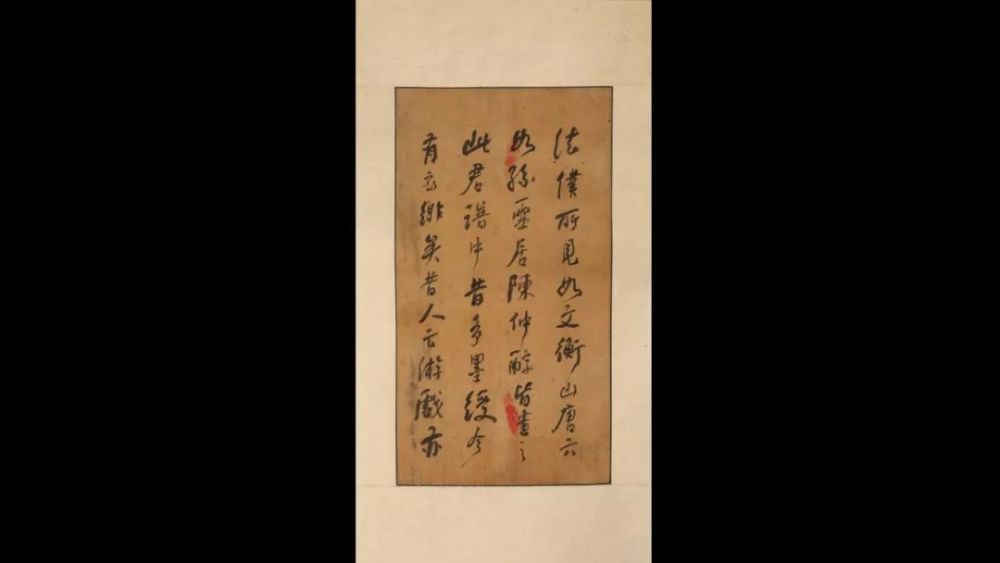 法僕所見如文衡山唐六
如孫雪居陳仲醇皆畫之
此君譜中昔多墨綬今
有衣緋矣昔人云游戲亦